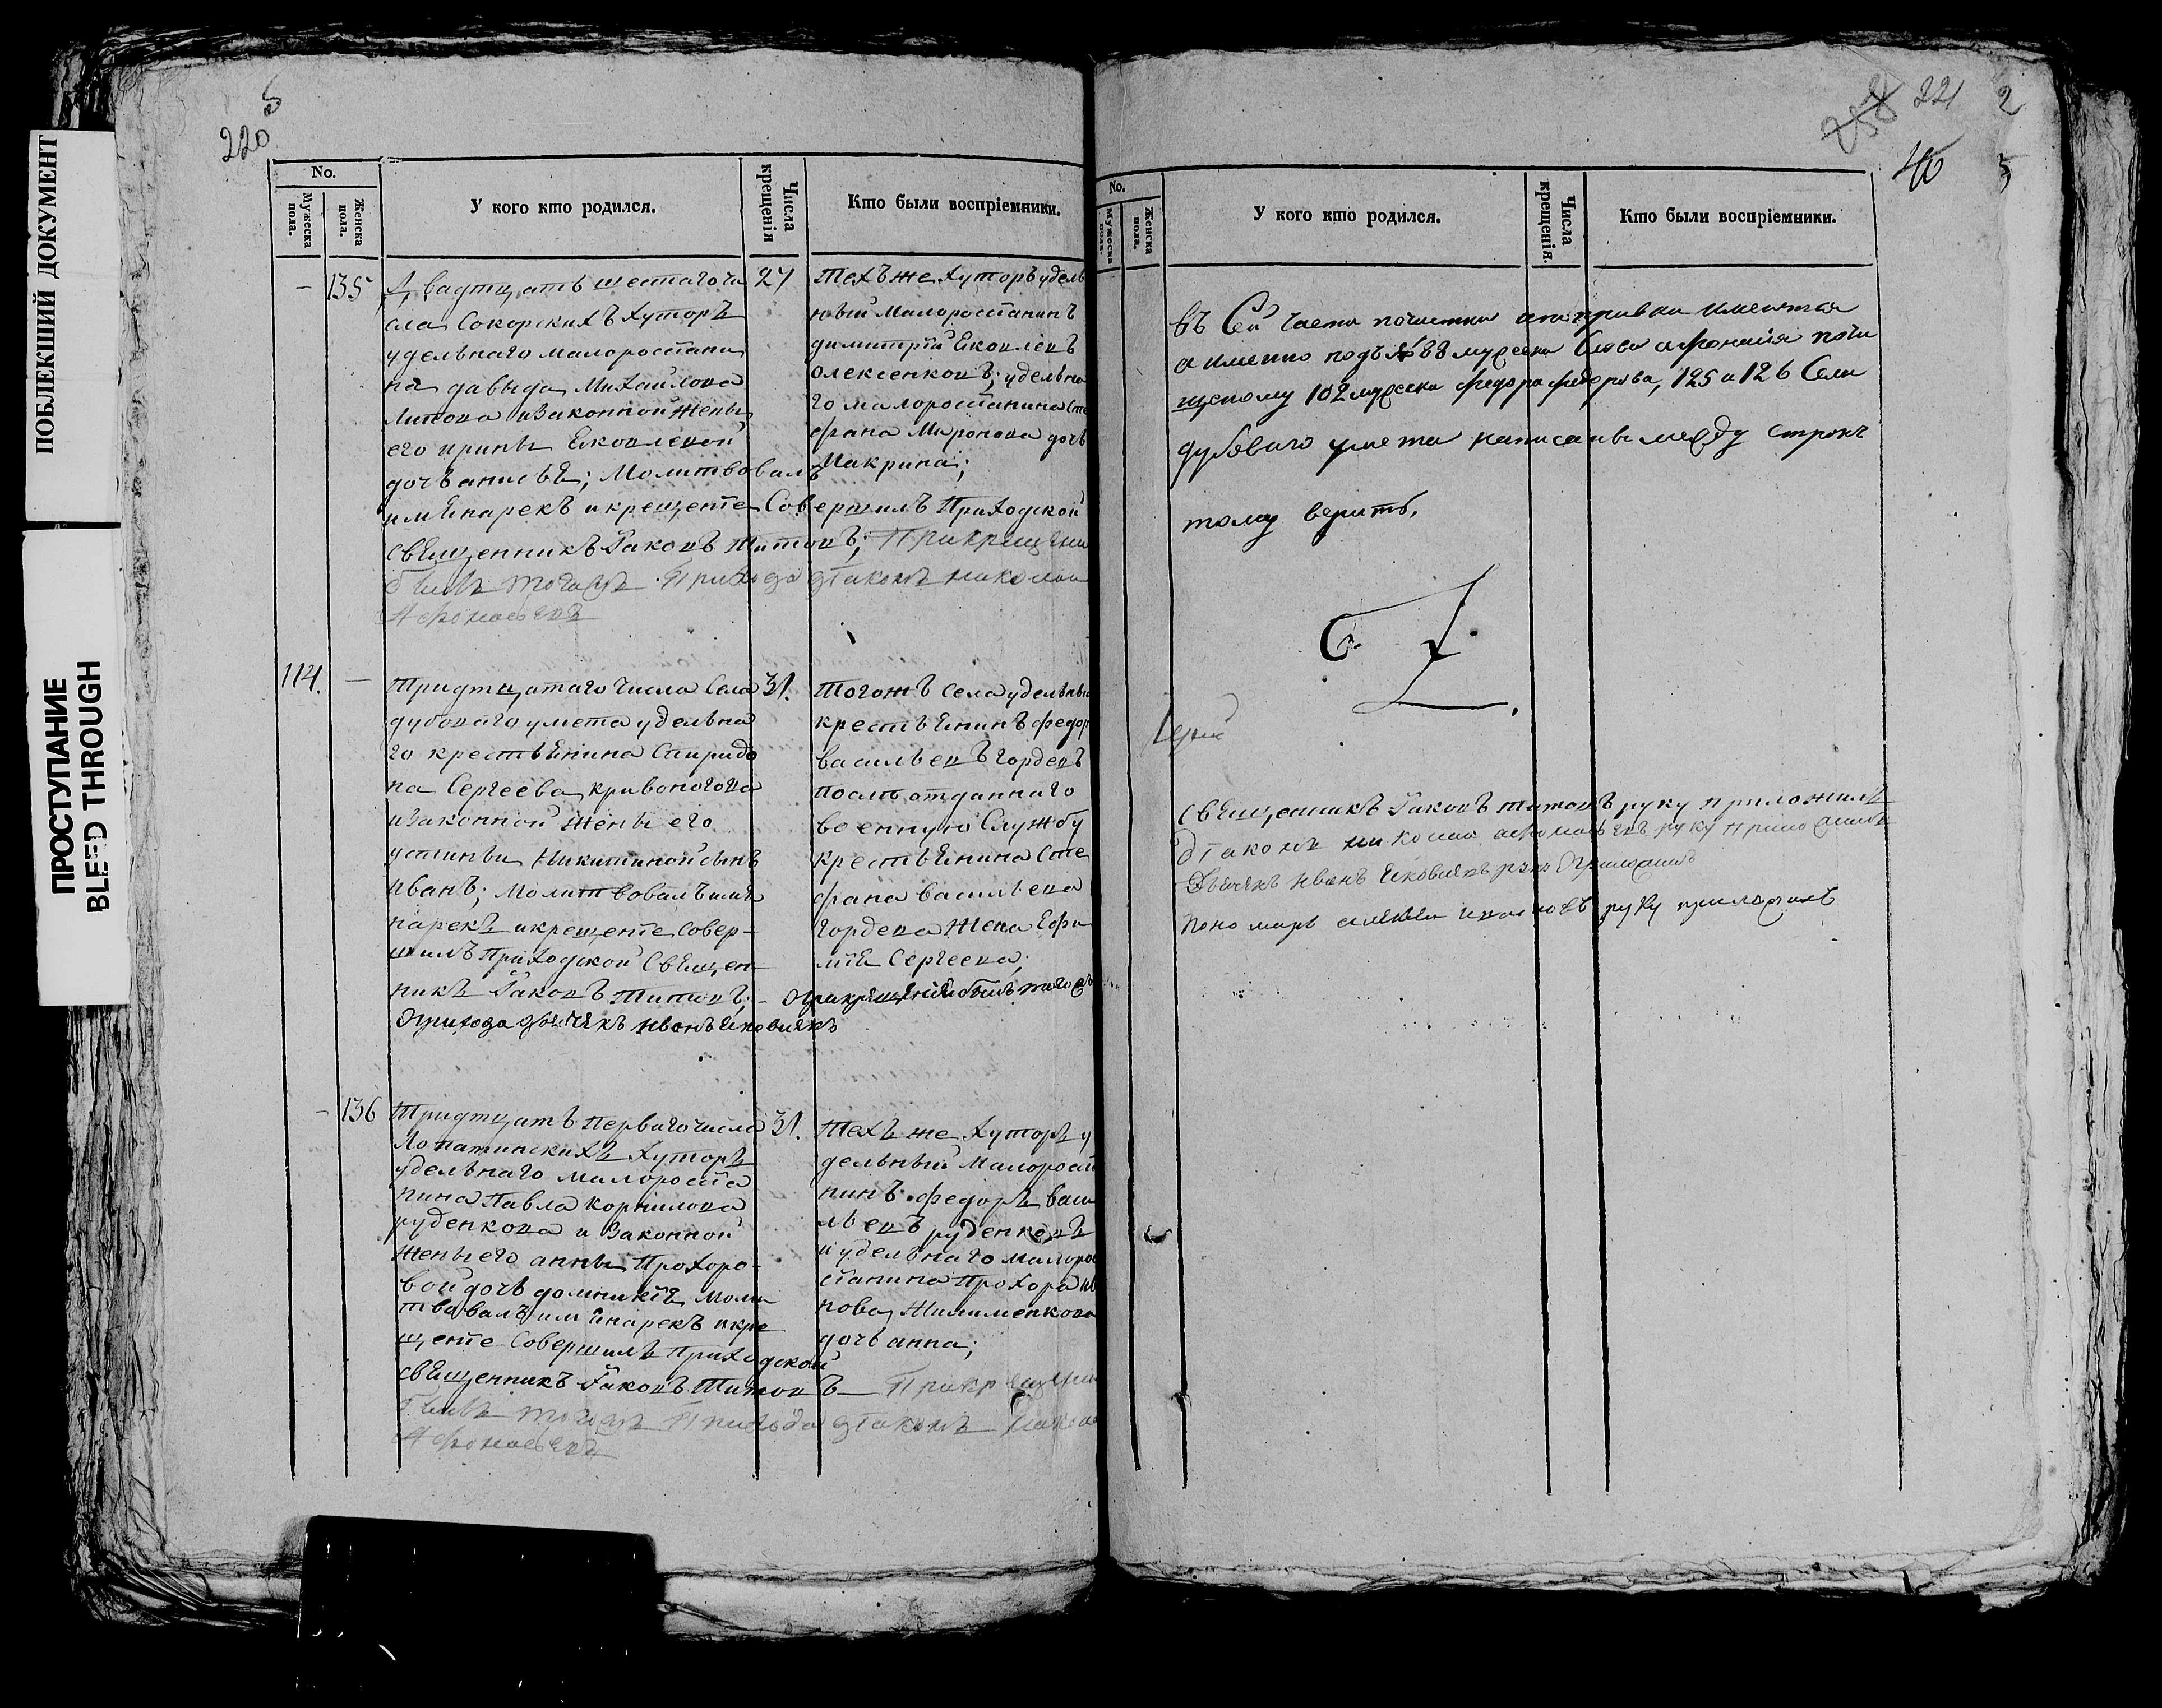 ПОБЛЕКШИЙ ДОКУМЕНТ
ПРОСТУПАНИЕ
BLEED THROUGH
5
220
No.
Мужеска пола.
Женска пола.
У кого кто родился.
Числа крещенія
Кто были воспріемники.
— 135
Двадтцать шестаго чи
сла Сокорскихъ Хуторъ
удельнаго малороссіани
на давыда Михайлова
Литова и законной жены
его ирины Яковлевой
дочь анисья; Молитвовалъ
имя нарекъ и крещеніе Совершилъ Приходской
Священникъ Іаковъ Титовъ; При крещении
былъ тогожъ Прихода діаконъ николаи
Афонасьевъ
27
Техъ же Хуторъ удель
ный Малороссіанинъ
димитрій Яковлевъ
олексенковъ; удельна
го малороссіанина Сте
фана Миронова дочь
Макрина;
114. —
Тридтцатаго числа Села
дубоваго умета удельна
го крестьянина Спиридо
на Сергеева кривоногова
и законной жены его
устиньи Никитиной сынъ
иванъ; молитвовалъ имя
нарекъ и крещеніе совер-
шилъ Приходской Священ-
никъ Іаковъ Титовъ; — При крещении былъ тогожъ
Прихода дьячекъ иванъ яковлевъ
31.
Тогожъ села удельный
крестьянинъ федоръ
васильевъ гордевъ
отданнаго
военную Службу
крестьянина Сте
фана васильева
гордева жена Ефи
мія Сергеева;
— 136
Тридтцать перваго числа
Лопатинскихъ Хуторъ
удельнаго малороссіа
нина Павла корнилова
руденкова и законной
жены его анны Прохоро-
вой дочь домникія моли
твовалъ имя нарекъ и кре
щеніе Совершилъ Приходской
священникъ Іаковъ Титовъ — При крещении
былъ тогожъ Прихода діаконъ николаи
Афонасьевъ
31.
Техъ же Хуторъ у
дельный Малороссіа
нинъ федоръ васи
льевъ руденковъ
и удельнаго малорос
сіанина Прохора ив
нова
дочь анна;
258 221 2
40 5
No.
Мужеска пола.
Женска пола.
У кого кто родился.
Числа крещенія.
Кто были воспріемники.
въ Сей части почистки и поправки имеются
а именно подъ № 88 мужеска слова афонасія почи
щеному 102 мужеска федора федорова, 125 и 126 Села
дубоваго умета написаны между строкъ
тому верить.
Священникъ Іаковъ титовъ руку приложилъ
діаконъ николаи афонасьевъ руку приложилъ
Дьячекъ иванъ яковлевъ руку приложилъ
пономарь алексеи ивановъ руку приложилъ